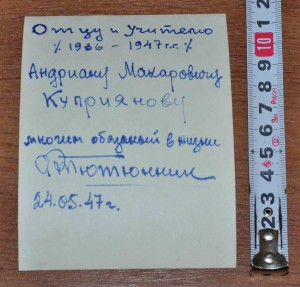 Отцу и Учителю
% 1936 - 1947 г.г. %
Андриану Макаровичу
Куприянову
многим обязаный в жизни
Тютюнник
24.05.47г.
10
9
8
7
6
5
4
3
2